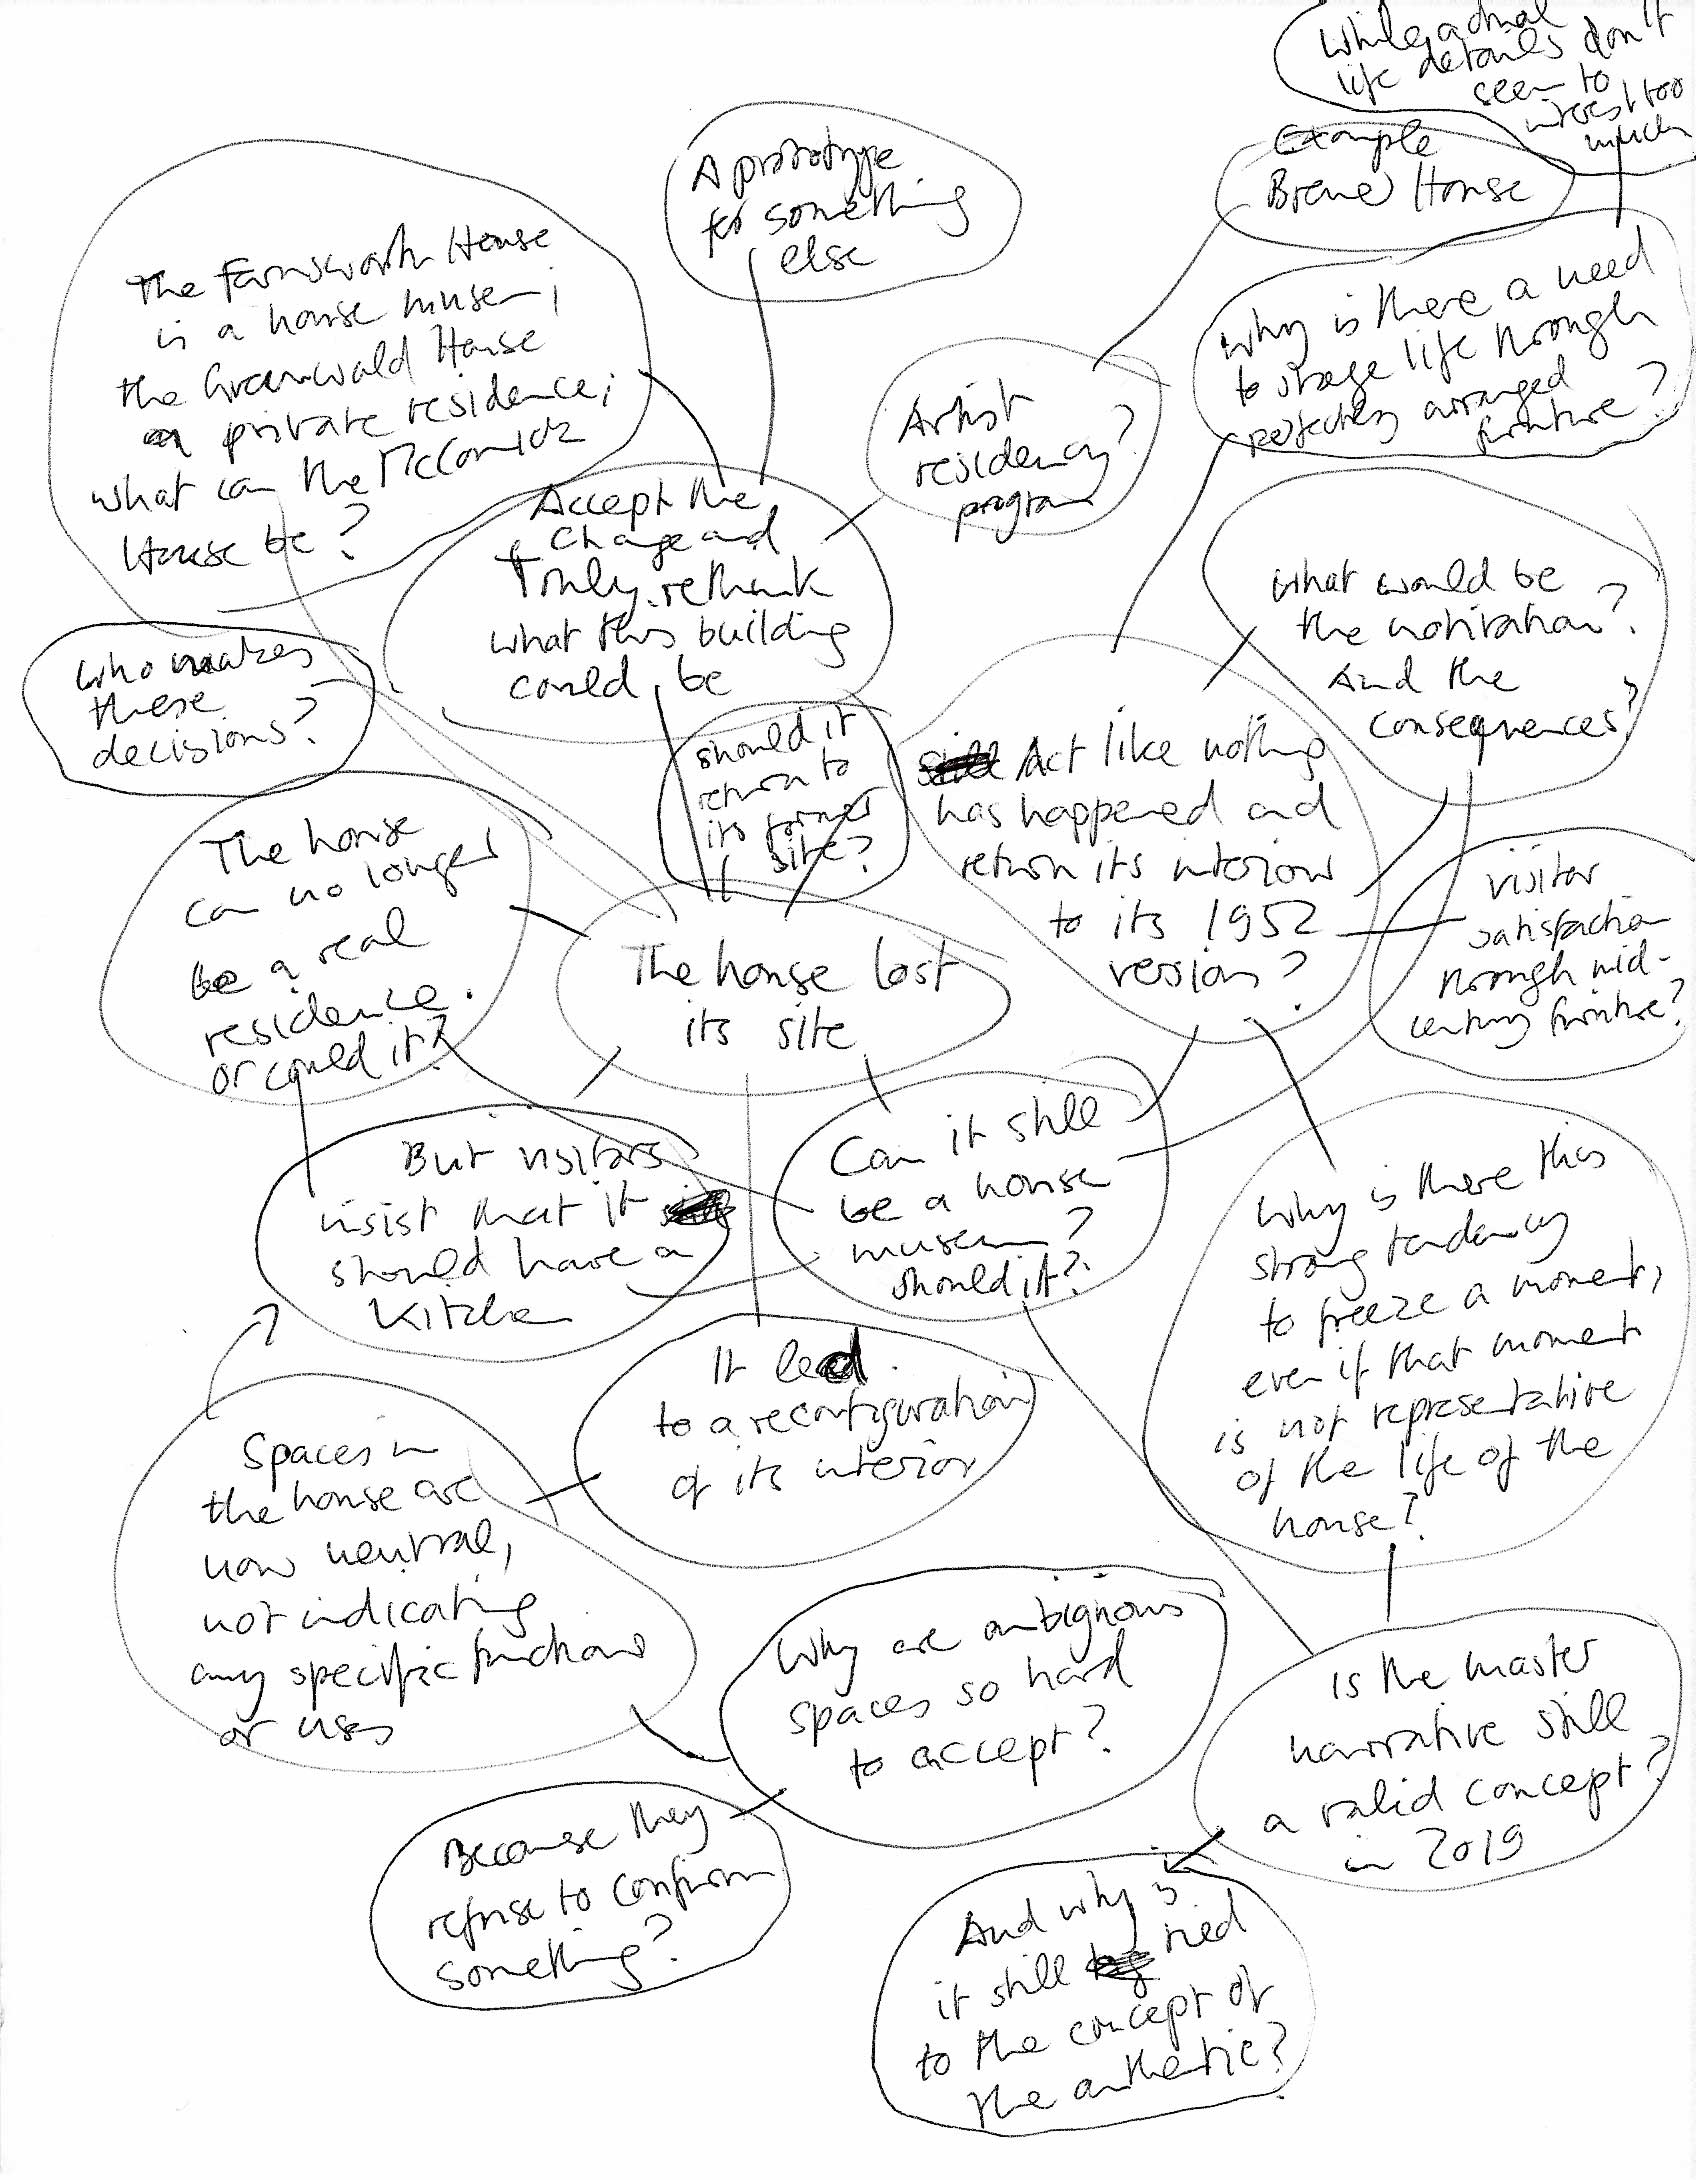 While actual
life details don't
seem to
interest too
much
Example
Breuer House
A prototype
for something
else
The Farnsworth House
is a house museum;
the Greenwald House
a private residence;
what can the McCormick
House be?
Why is there a need
to stage life through
perfectly arranged
furniture?
Artist
residency?
program
Accept the
change and
truly rethink
what this building
could be
What would be
the motivation?
And the
consequences?
Who makes
these
decisions?
should it
return to
its former
site?
Act like nothing
has happened and
return its interior
to its 1952
version?
The house
can no longer
be a real
residence.
or could it?
visitor
satisfaction
through mid-
century furniture?
The house lost
its site
But visitors
insist that it
should have a
kitchen
Can it still
be a house
museum?
should it?
Why is there this
strong tendency
to freeze a moment,
even if that moment
is not representative
of the life of the
house?
It led
to a reconfiguration
of its interior
Spaces in
the house are
now neutral,
not indicating
any specific functions
or uses
Why are ambiguous
spaces so hard
to accept?
Is the master
narrative still
a valid concept?
in 2019
Because they
refuse to confirm
something?
And why is
it still tied
to the concept of
the authentic?